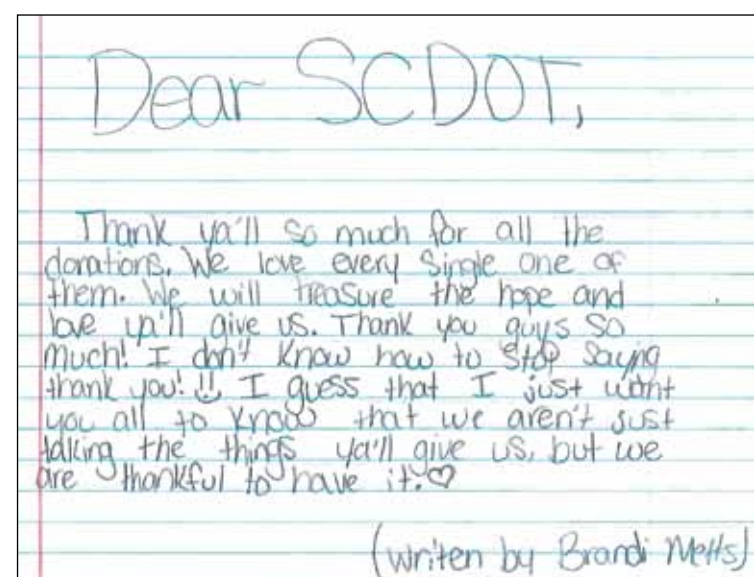 Dear SCDOT,
Thank ya'll so much for all the
donations. We love every single one of
them. We will treasure the hope and
love ya'll give us. Thank you guys so
much! I don't know how to stop saying
thank you! I guess that I just want
you all to know that we aren't just
taking the things ya'll give us, but we
are thankful to have it.♡
(writen by Brandi Metts)